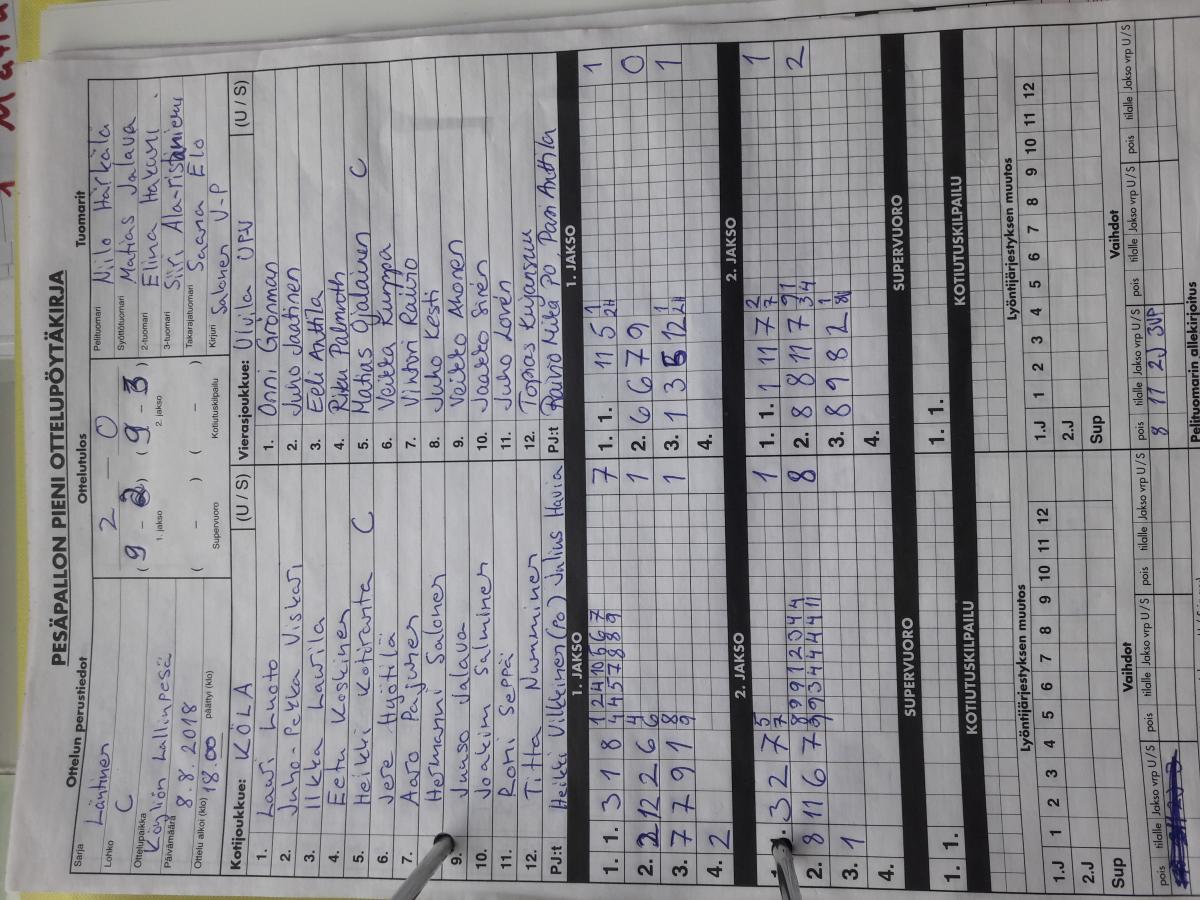 PESÄPALLON PIENI OTTELUPÖYTÄKIRJA
Ottelun perustiedot Ottelutulos Tuomarit
Sarja Läntinen
Lohko C
Ottelupaikka Köyliön hallinpesä
Päivämäärä 8.8.2018
Ottelu alkoi (klo) 18.00 päättyi (klo)
2 – 0
( 9 - 2 ) ( 9 - 3 )
1. jakso 2. jakso
( - ) ( - )
Supervuoro Kotiutuskilpailu
Pelituomari Niilo Härkälä
Syöttötuomari Matias Jalava
2-tuomari Elina Hakuni
3-tuomari Siiri Ala-ristaniemi
Takarajatuomari Saana Elo
Kirjuri Salonen V-P
Kotijoukkue: KÖLA (U / S)
1. Lauri Luoto
2. Juho-Pekka Viskari
3. Ilkka Laurila
4. Eetu Koskinen
5. Heikki Kotiranta C
6. Jere Hyötilä
7. Aaro Pajunen
8. Hermanni Salonen
9. Juuso Jalava
10. Joakim Salminen
11. Roni Seppä
12. Titta Numminen
PJ:t Heikki Vilkkinen (PO) Julius Havia
Vierasjoukkue: Ulvila UPV (U / S)
1. Onni Grönman
2. Juho Jaatinen
3. Eeli Anttila
4. Riku Palmroth
5. Matias Ojalainen C
6. Veikka Kumppa
7. Vihtori Raivio
8. Juho Kesti
9. Veikko Ahonen
10. Jaakko Sirén
11. Juho Lovén
12. Topas Kujansuu
PJ:t Raivio Mika PO, Pasi Anttila
1. JAKSO 1. JAKSO
1. 1. 3 1 8 7
2. 2 12 2 6 1
3. 7 7 9 1 1
4. 2
1. 1. 11 5 1
2. 6 6 7 9 0
3. 1 3 5 12 1
4.
2. JAKSO 2. JAKSO
1. 1. 3 2 7 1
2. 8 11 6 7 8
3. 1
4.
1. 1. 1 11 7 1
2. 8 8 11 7 2
3. 8 9 8 2
4.
SUPERVUORO SUPERVUORO
1. 1. 1. 1.
KOTIUTUSKILPAILU KOTIUTUSKILPAILU
Lyöntijärjestyksen muutos Lyöntijärjestyksen muutos
1.J 1 2 3 4 5 6 7 8 9 10 11 12
2.J
Sup
1.J 1 2 3 4 5 6 7 8 9 10 11 12
2.J
Sup
Vaihdot Vaihdot
pois tilalle Jakso vrp U/S pois tilalle Jakso vrp U/S pois tilalle Jakso vrp U/S
pois tilalle Jakso vrp U/S pois tilalle Jakso vrp U/S pois tilalle Jakso vrp U/S
8 11 2J 3VP
Pelituomarin allekirjoitus